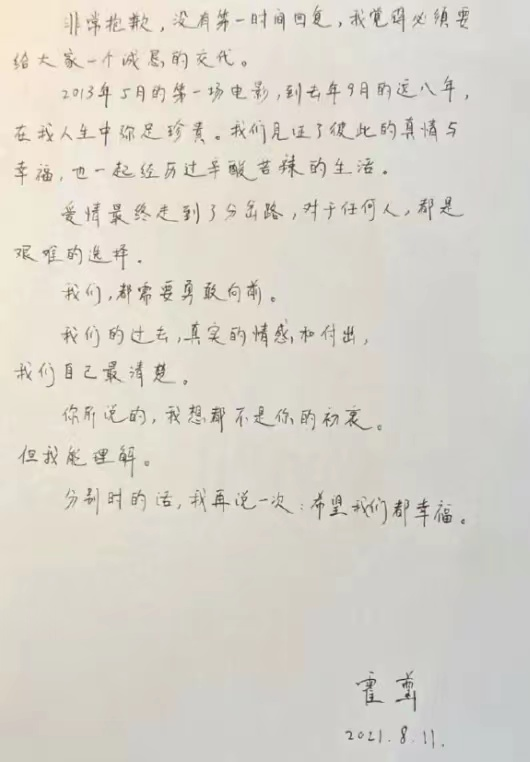 非常抱歉，没有第一时间回复，我觉得必须要
给大家一个诚恳的交代。
2013年5月的第一场电影，到去年9月的这八年，
在我人生中弥足珍贵。我们见证了彼此的真情与
幸福，也一起经历过辛酸苦辣的生活。
爱情最终走到了分岔路，对于任何人，都是
艰难的选择．
我们，都需要勇敢向前。
我们的过去，真实的情感，和付出，
我们自己最清楚。
你所说的，我想都不是你的初衷。
但我能理解。
分别时的话，我再说一次：希望我们都幸福。
霍尊
2021.8.11.